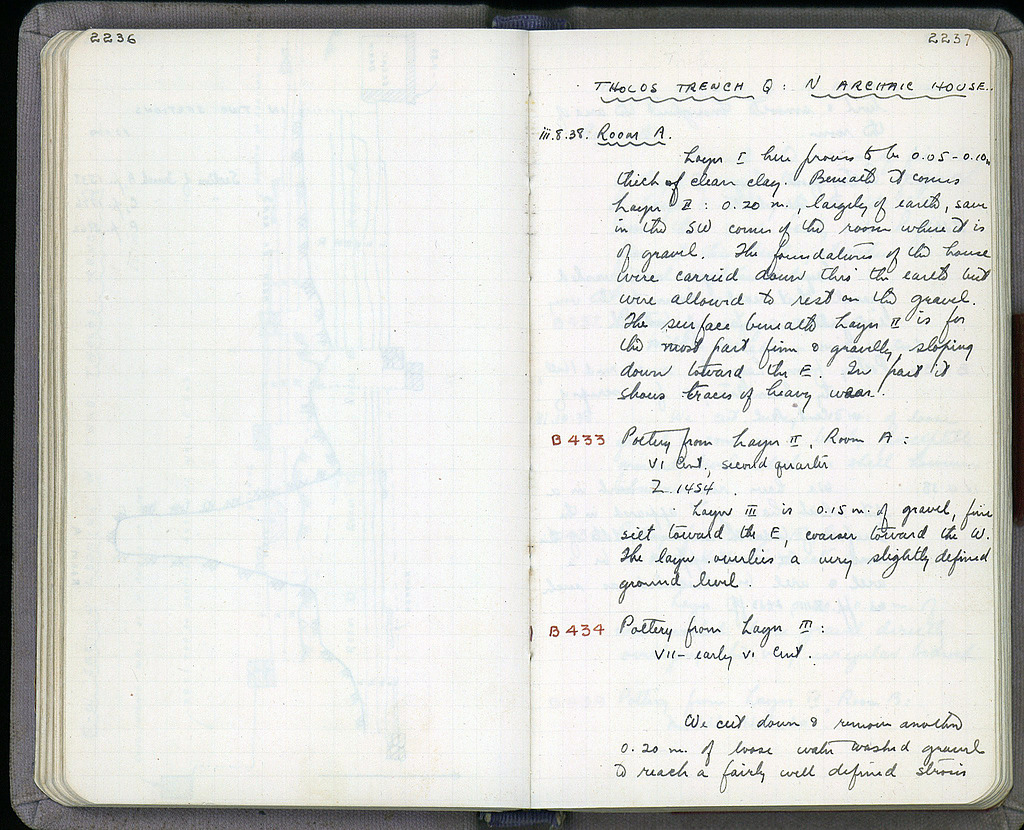 2236
2237
THOLOS TRENCH Q: N ARCHAIC HOUSE.
iii.8.38. Room A.
Layer I here proves to be 0.05-0.10m
thick of clean clay. Beneath it comes
Layer II: 0.20 m., largely of earth, save
in the SW corner of the room where it is
of gravel. The foundations of the house
were carried down thru the earth but
were allowed to rest on the gravel.
The surface beneath Layer II is for
the most part firm & gravelly, sloping
down toward the E. In part it
shows traces of heavy wear.
B 433 Pottery from Layer II, Room A:
VI Cent., second quarter
Z 1454.
Layer III is 0.15 m. of gravel, fine
silt toward the E, coarser toward the W.
The layer overlies a very slightly defined
ground level.
B 434 Pottery from Layer III:
VII - early VI Cent.
We cut down & remove another
0.20 m. of loose water washed gravel
to reach a fairly well defined